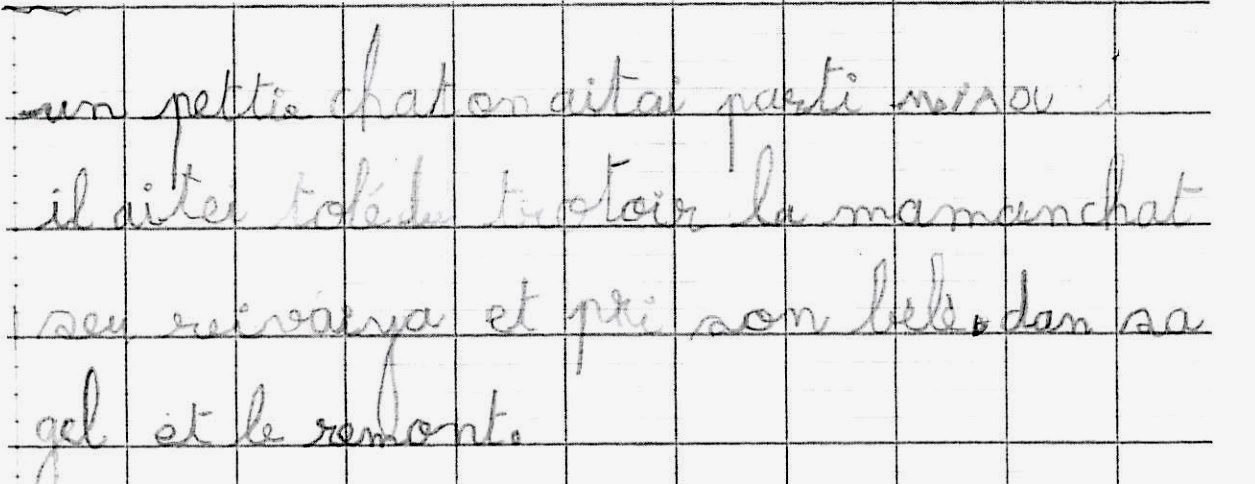 un pettie chaton aitai parti
il aitei tolédu trotoir la mamanchat
seu reivaiya et pri son bèlè dan sa
gel et le remont.